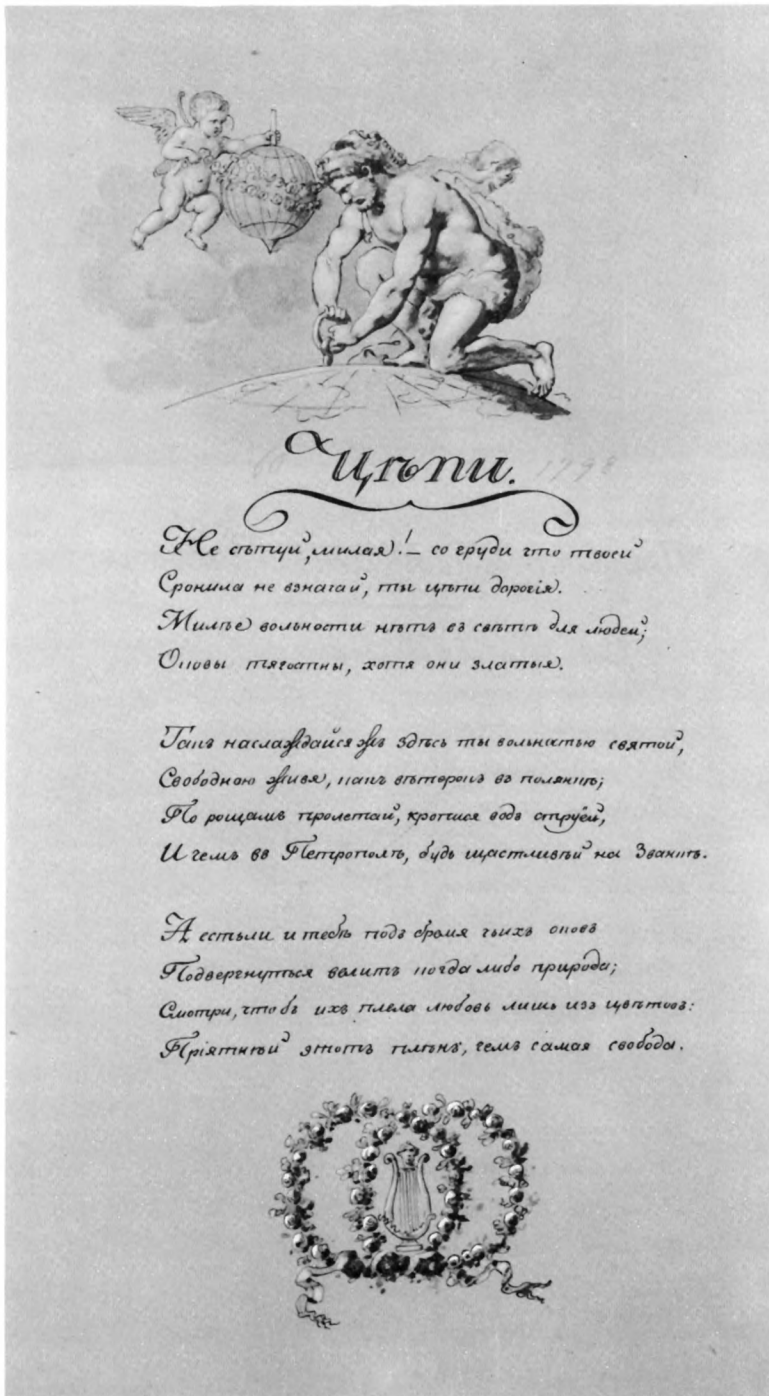 Цѣпи. 1798
Не сѣтуй, милая! – со груди что твоей
Сронила не взначай, ты цѣпи дорогія.
Милѣе вольности нѣтъ въ свѣтѣ для людей;
Оковы тягостны, хотя они златыя.
Такъ наслаждайсяжъ здѣсь ты вольностью святой,
Свободною живя, какъ вѣтерокъ въ полянкѣ;
По рощамъ пролетай, кропися водъ струей,
И чемъ въ Петрополѣ, будь щастливѣй на Званкѣ.
А естьли и тебѣ подъ бремя чьихъ оковъ
Подвергнуться велитъ когда либо природа;
Смотри, чтобъ ихъ плела любовь лишь изъ цвѣтовъ:
Пріятнѣй этотъ плѣнъ, чемъ самая свобода.